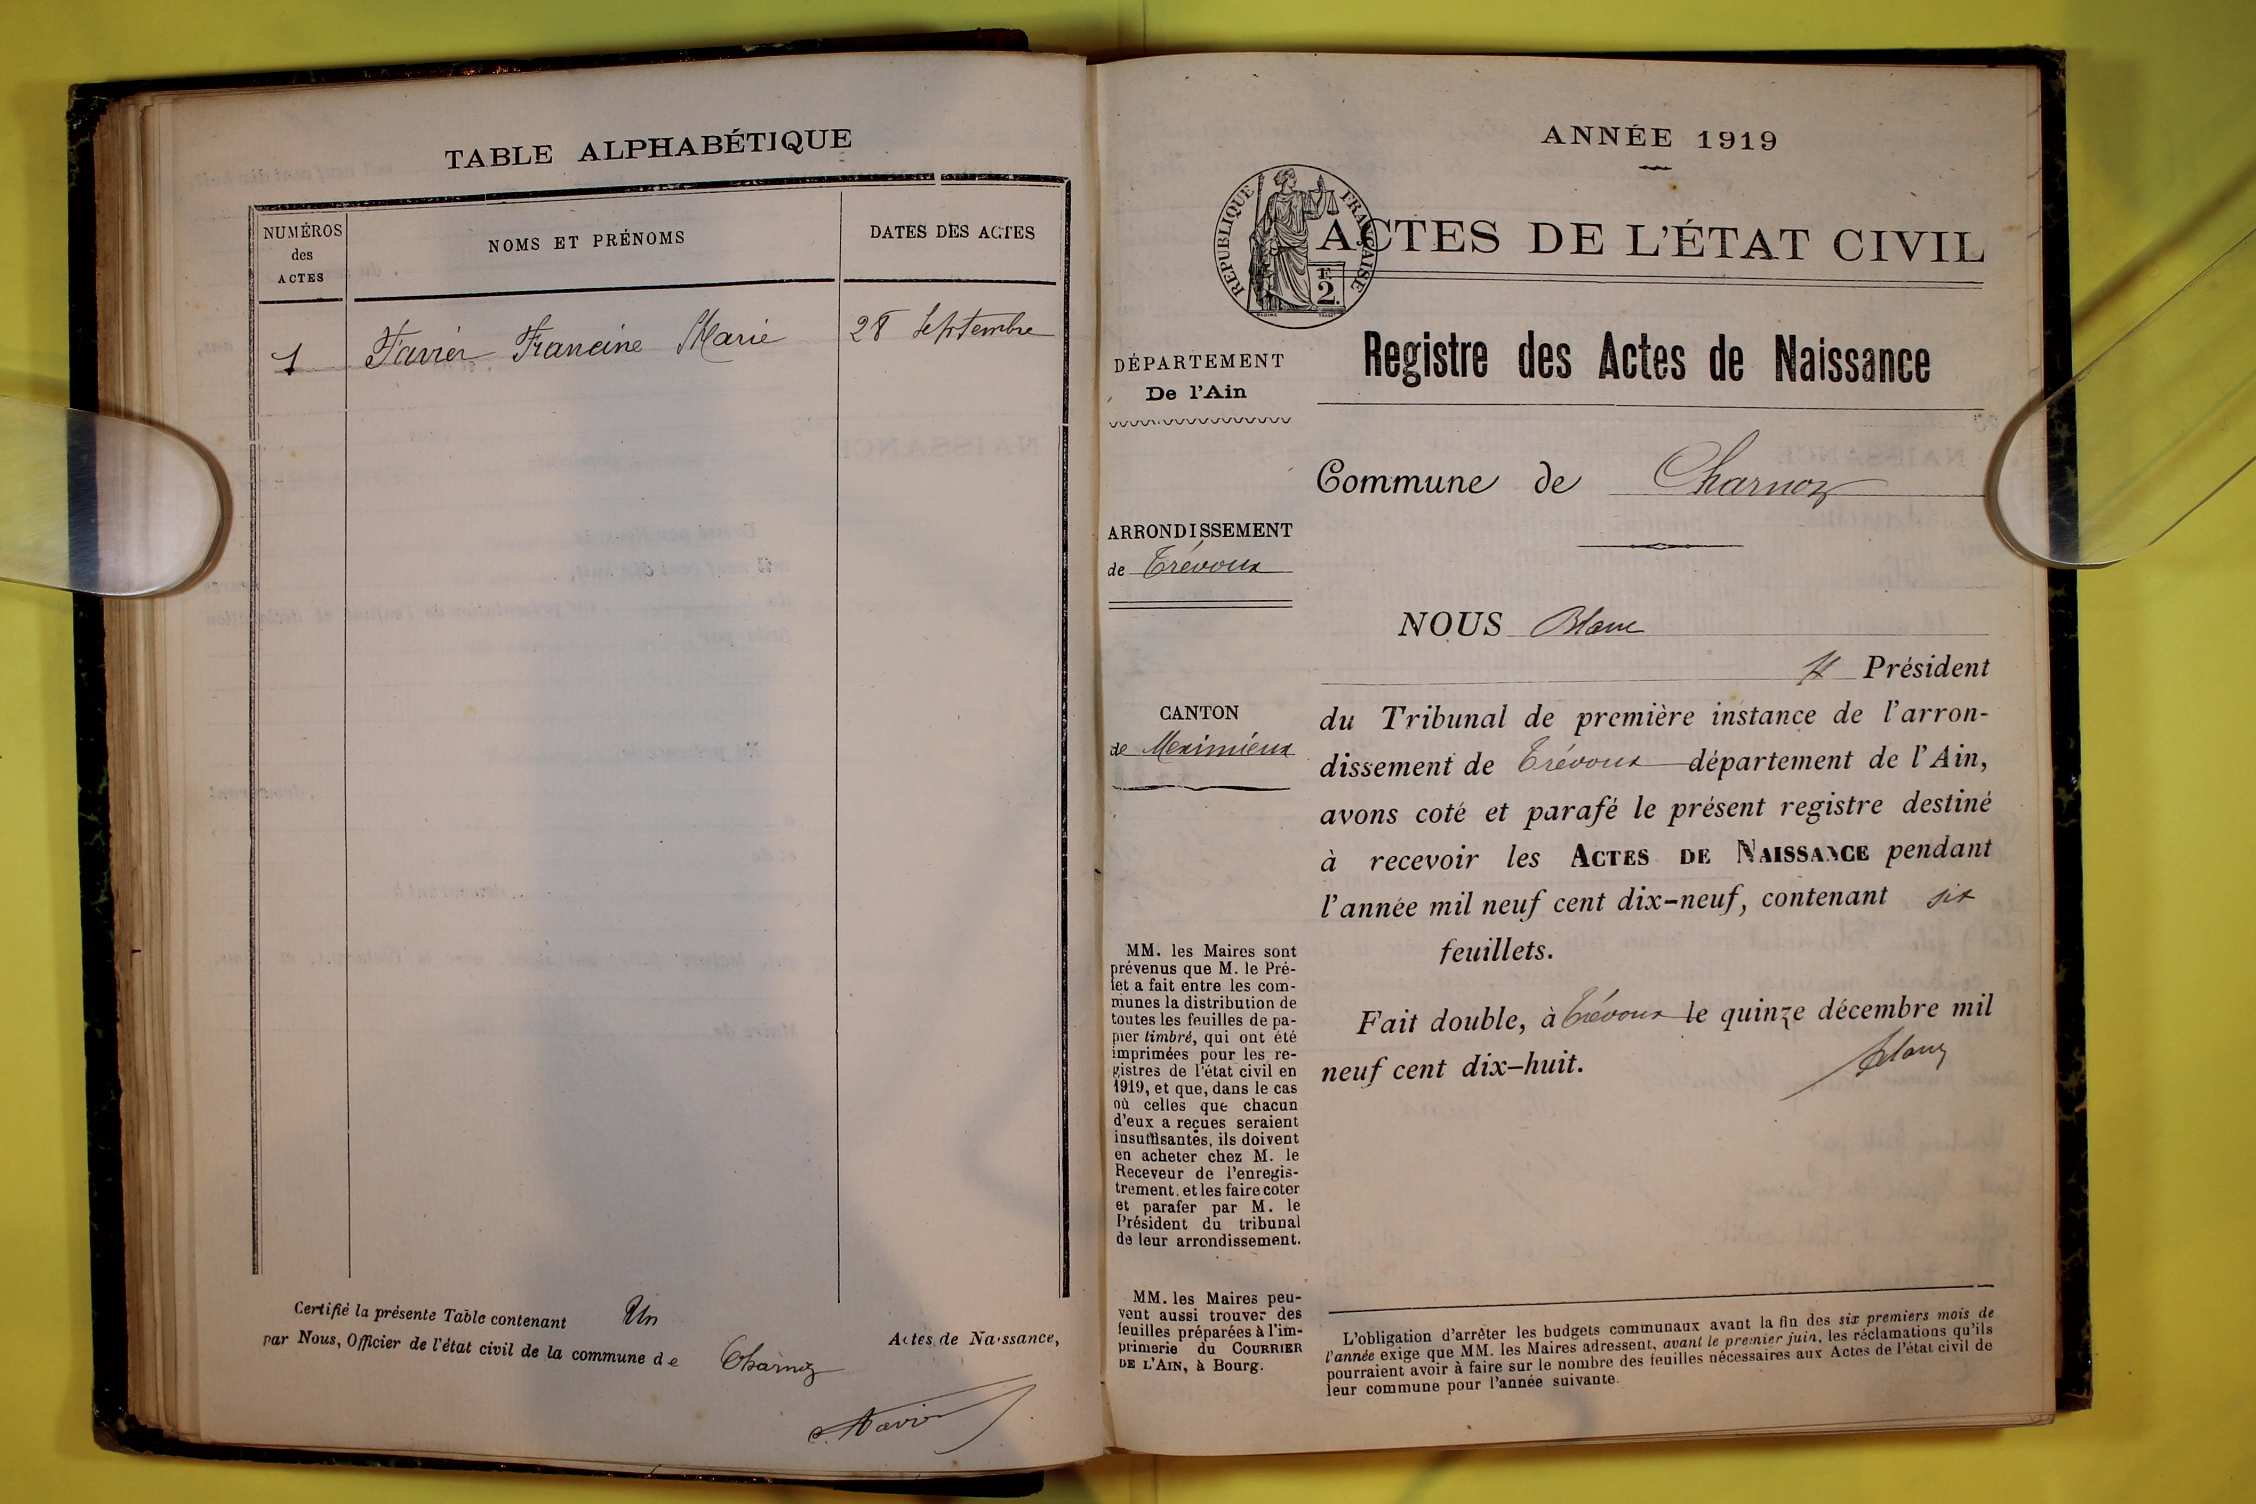 TABLE ALPHABÉTIQUE
NUMÉROS
des
ACTES
NOMS ET PRÉNOMS
DATES DES ACTES
1 Favier Francine Marie 28 Septembre
Certifié la présente Table contenant Un Actes de Naissance,
par Nous, Officier de l'état civil de la commune de Charnoz
Favier
ANNÉE 1919
RÉPUBLIQUE FRANÇAISE
F.
2.
ACTES DE L'ÉTAT CIVIL
DÉPARTEMENT
De l'Ain
ARRONDISSEMENT
de Trévoux
CANTON
de Meximieux
MM. les Maires sont
prévenus que M. le Pré-
fet a fait entre les com-
munes la distribution de
toutes les feuilles de pa-
pier timbré, qui ont été
imprimées pour les re-
gistres de l'état civil en
1919, et que, dans le cas
où celles que chacun
d'eux a reçues seraient
insuffisantes, ils doivent
en acheter chez M. le
Receveur de l'enregis-
trement, et les faire coter
et parafer par M. le
Président du tribunal
de leur arrondissement.
MM. les Maires peu-
vent aussi trouver des
feuilles préparées à l'im-
primerie du COURRIER
DE L'AIN, à Bourg.
Registre des Actes de Naissance
Commune de Charnoz
NOUS Blanc
Président
du Tribunal de première instance de l'arron-
dissement de Trévoux département de l'Ain,
avons coté et parafé le présent registre destiné
à recevoir les ACTES DE NAISSANCE pendant
l'année mil neuf cent dix-neuf, contenant six
feuillets.
Fait double, à Trévoux le quinze décembre mil
neuf cent dix-huit.
Blanc
L'obligation d'arrêter les budgets communaux avant la fin des six premiers mois de
l'année exige que MM. les Maires adressent, avant le premier juin, les réclamations qu'ils
pourraient avoir à faire sur le nombre des feuilles nécessaires aux Actes de l'état civil de
leur commune pour l'année suivante.